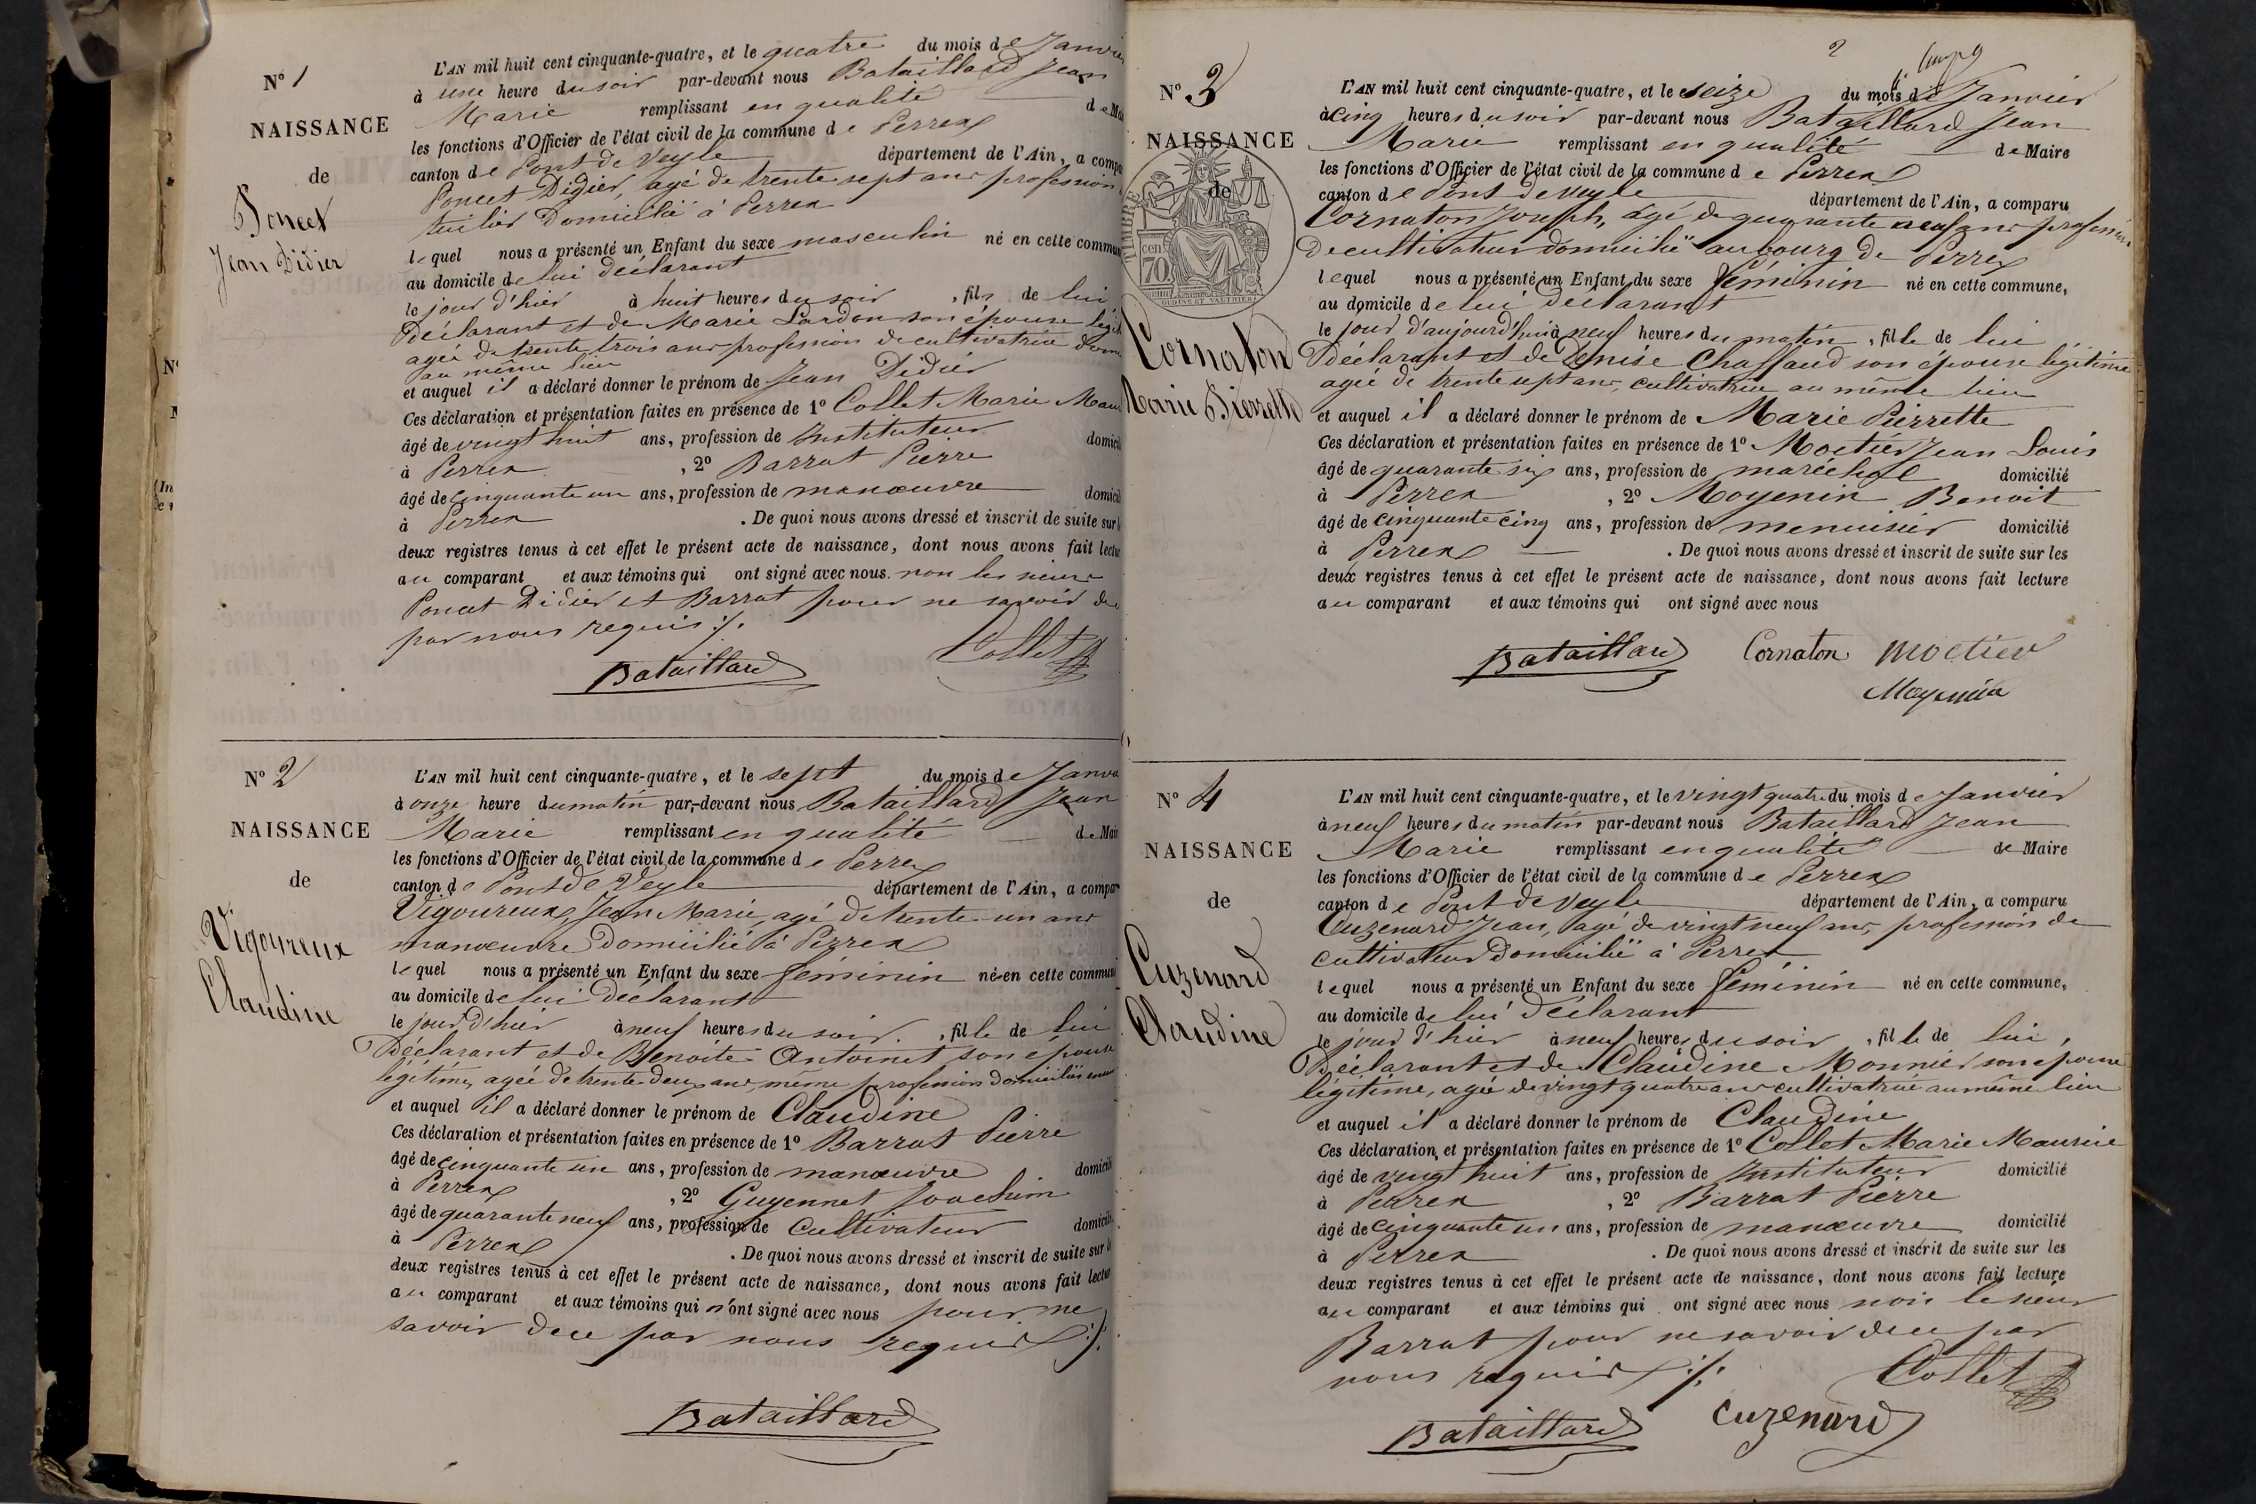 N° 1
NAISSANCE
de
Poncet
Jean Didier
L'AN mil huit cent cinquante-quatre, et le quatre du mois de Janvier
à une heure du soir par-devant nous Bataillard Jean
Marie remplissant en qualité de Mai
les fonctions d'Officier de l'état civil de la commune de Perrex
canton de Pont de Veyle département de l'Ain, a compa
Poncet Didier, agé de trente sept ans profession
tuilier domicilié à Perrex
lequel nous a présenté un Enfant du sexe masculin né en cette commun
au domicile de lui déclarant
le jour d'hier à huit heures du soir, fils de lui
Déclarant et de Marie Lardon son épouse légit
agée de trente trois ans profession de cultivatrice dom
au même lieu
et auquel il a déclaré donner le prénom de Jean Didier
Ces déclaration et présentation faites en présence de 1° Collet Marie Mau
âgé de vingt huit ans, profession de Instituteur domicil
à Perrex, 2° Barrat Pierre
âgé de cinquante un ans, profession de manœuvre domicil
à Perrex. De quoi nous avons dressé et inscrit de suite sur l
deux registres tenus à cet effet le présent acte de naissance, dont nous avons fait lectu
au comparant et aux témoins qui ont signé avec nous non les sieurs
Poncet Didier et Barrat pour ne savoir de ce
par nous requis ./.
Bataillard Collet
N° 2
NAISSANCE
de
Vigoureux
Claudine
L'AN mil huit cent cinquante-quatre, et le sept du mois de Janvi
à onze heure du matin par-devant nous Bataillard Jean
Marie remplissant en qualité de Mair
les fonctions d'Officier de l'état civil de la commune de Perrex
canton de Pont de Veyle département de l'Ain, a compar
Vigoureux Jean Marie, agé de trente-un ans
manœuvre domicilié à Perrex
lequel nous a présenté un Enfant du sexe féminin née en cette commun
au domicile de lui déclarant
le jour d'hier à neuf heures du soir, fille de lui
Déclarant et de Benoite Antoinet son épouse
légitime, agée de trente-deux ans, même profession domicilié
et auquel il a déclaré donner le prénom de Claudine
Ces déclaration et présentation faites en présence de 1° Barrat Pierre
âgé de cinquante un ans, profession de manœuvre domicili
à Perrex, 2° Guyennet Joachim
âgé de quarante neuf ans, profession de cultivateur domicili
à Perrex. De quoi nous avons dressé et inscrit de suite sur l
deux registres tenus à cet effet le présent acte de naissance, dont nous avons fait lectu
au comparant et aux témoins qui n'ont signé avec nous pour ne
savoir de ce par nous requis ./.
Bataillard
2
N° 3
NAISSANCE
de
TIMBRE
cen 70
Cornaton
Marie Pierrette
L'AN mil huit cent cinquante-quatre, et le seize du mois de Janvier
à cinq heures du soir par-devant nous Bataillard Jean
Marie remplissant en qualité de Maire
les fonctions d'Officier de l'état civil de la commune de Perrex
canton de Pont de Veyle département de l'Ain, a comparu
Cornaton Joseph, agé de quarante neuf ans profession
de cultivateur domicilié au bourg de Perrex
lequel nous a présenté un Enfant du sexe féminin né en cette commune,
au domicile de lui déclarant
le jour d'aujourd'hui à neuf heures du matin, fille de lui
Déclarant et de Denise Chaffaud son épouse légitime
agée de trente sept ans, cultivatrice au même lieu
et auquel il a déclaré donner le prénom de Marie Pierrette
Ces déclaration et présentation faites en présence de 1° Moetier Jean Louis
âgé de quarante six ans, profession de maréchal domicilié
à Perrex, 2° Moyenin Benoit
âgé de cinquante cinq ans, profession de menuisier domicilié
à Perrex. De quoi nous avons dressé et inscrit de suite sur les
deux registres tenus à cet effet le présent acte de naissance, dont nous avons fait lecture
au comparant et aux témoins qui ont signé avec nous
Bataillard Cornaton Moetier
Moyenin
N° 4
NAISSANCE
de
Cuzenard
Claudine
L'AN mil huit cent cinquante-quatre, et le vingt quatre du mois de Janvier
à neuf heures du matin par-devant nous Bataillard Jean
Marie remplissant en qualité de Maire
les fonctions d'Officier de l'état civil de la commune de Perrex
canton de Pont de Veyle département de l'Ain, a comparu
Cuzenard Jean, agé de vingt neuf ans, profession de
cultivateur domicilié à Perrex
lequel nous a présenté un Enfant du sexe féminin né en cette commune,
au domicile de lui déclarant
le jour d'hier à neuf heures du soir, fille de lui,
Déclarant et de Claudine Monnier son épouse
légitime, agée de vingt quatre ans cultivatrice au même lieu
et auquel il a déclaré donner le prénom de Claudine
Ces déclaration et présentation faites en présence de 1° Collet Marie Maurice
âgé de vingt huit ans, profession de Instituteur domicilié
à Perrex, 2° Barrat Pierre
âgé de cinquante un ans, profession de manœuvre domicilié
à Perrex. De quoi nous avons dressé et inscrit de suite sur les
deux registres tenus à cet effet le présent acte de naissance, dont nous avons fait lecture
au comparant et aux témoins qui ont signé avec nous non le sieur
Barrat pour ne savoir de ce par
nous requis ./. Collet
Bataillard Cuzenard